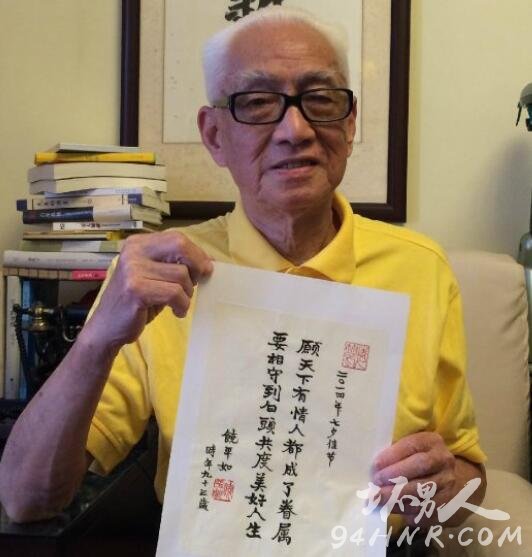 二〇一四年七夕佳节
願天下有情人都成了眷属
要相守到白頭共度美好人生
饒平如
时年九十三歲
坏男人
94HNR.COM